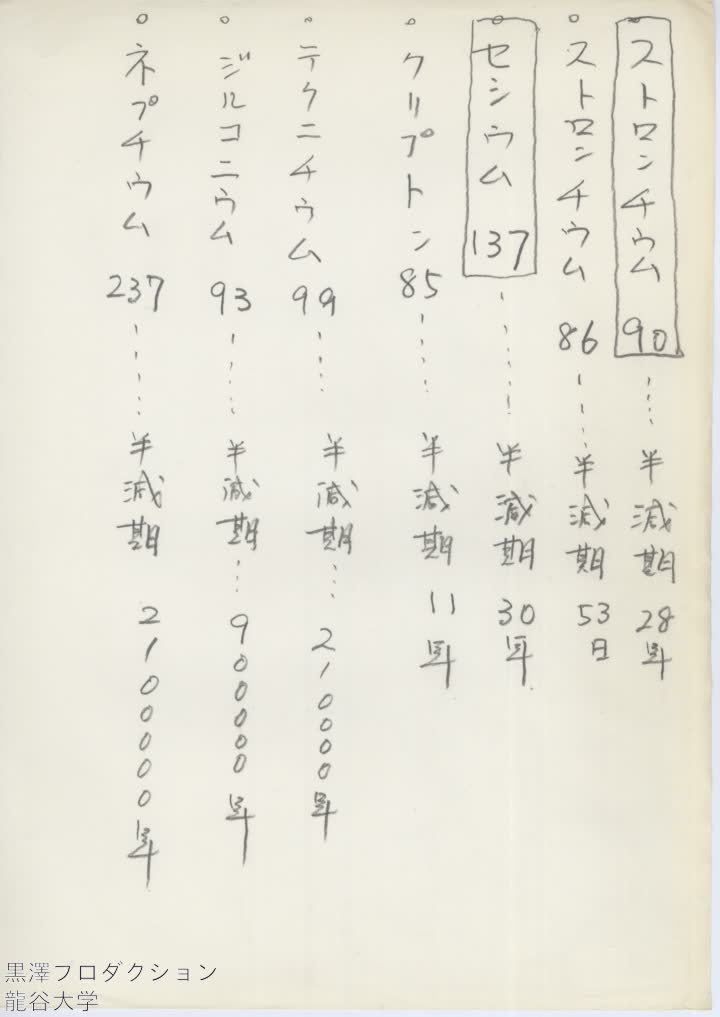 ○ストロンチウム90……半減期28年
○ストロンチウム86……半減期53日
○セシウム137……半減期30年
○クリプトン85……半減期11年
○テクニチウム99……半減期…210000年
○ジルコニウム93……半減期…900000年
○ネプチウム237……半減期2100000年
黒澤フロダクション
龍谷大学